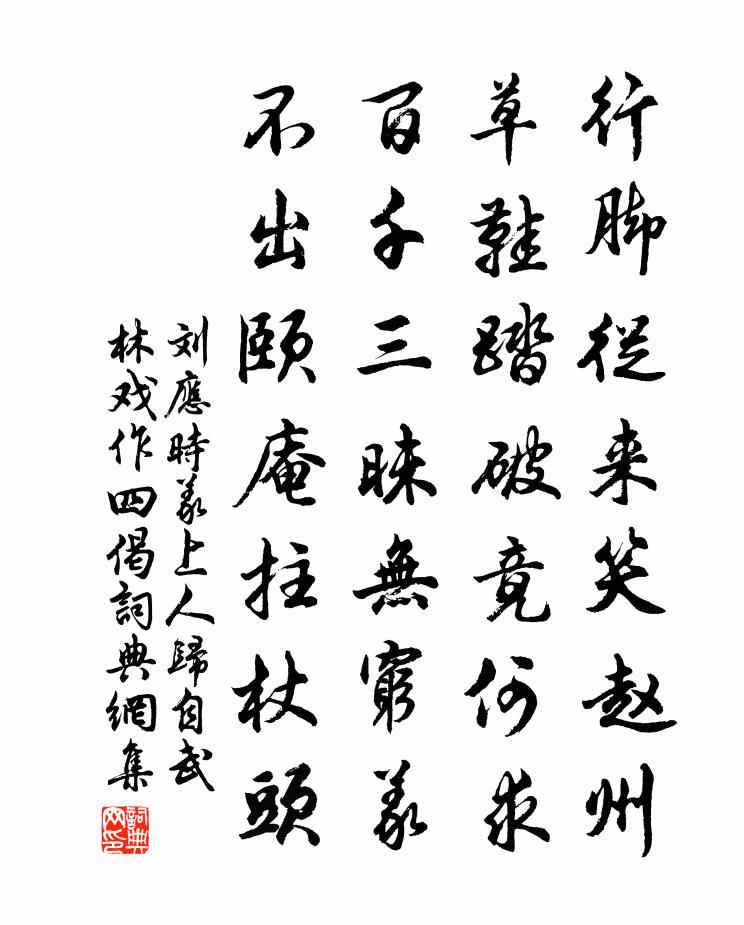 行脚從来笑赵州
草鞋踏破竟何求
百千三昧無窮義
不出頤庵拄杖頭
刘應時義上人歸自武
林戏作四偈詞典網集
詞典网印